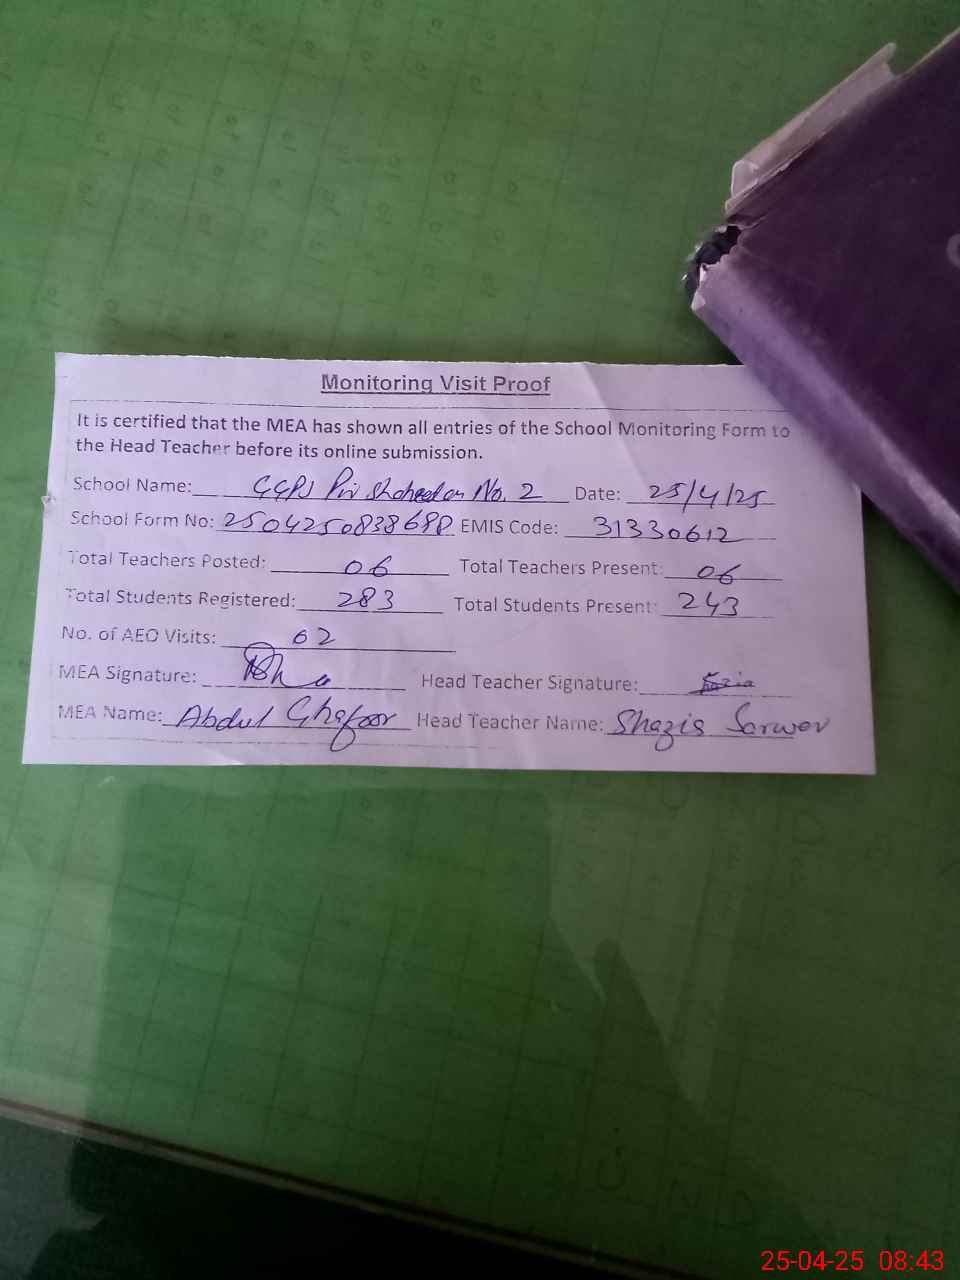 Monitoring Visit Proof
It is certified that the MEA has shown all entries of the School Monitoring Form to
the Head Teacher before its online submission.
School Name: GGPS Pir Shaheedan No. 2 Date: 25/4/25
School Form No: 2504250838698 EMIS Code: 31330612
Total Teachers Posted: 06 Total Teachers Present: 06
Total Students Registered: 283 Total Students Present: 243
No. of AEO Visits: 02
MEA Signature: Head Teacher Signature:
MEA Name: Abdul Ghafoor Head Teacher Name: Shazia Sarwer
25-04-25 08:43